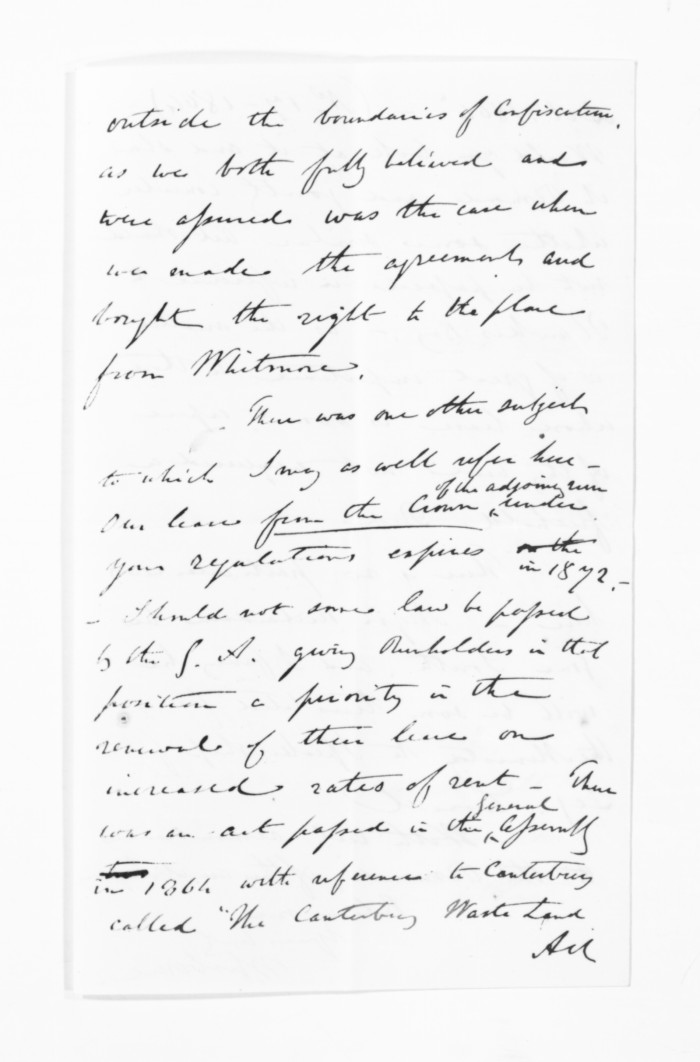 outside the boundaries of Confiscation.
as we both fully believed and
were assured was the case when
we made the agreement and
bought the right to the place
from Whitmore.
There was one other subject
to which I may as well refer here -
of the adjoining run
Our lease from the Crown under
your regulations expires on the
in 1872. -
- Should not some law be passed
by the G. A. giving Runholders in that
position a priority in the
renewal of their lease on
increased rates of rent - There
General
was an act passed in the Assembly
in 1864 with reference to Canterbury
called "The Canterbury Waste Land
Act